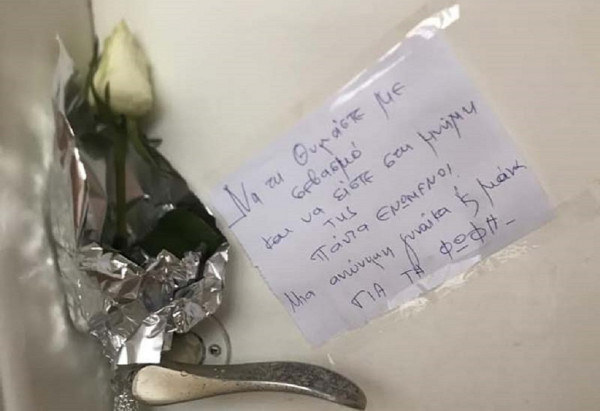 Να τη Θυμάστε ΜΕ
σεβασμό
και να είστε στη μνήμη
της
Πάντα ΕΝΩΜΕΝΟΙ
Μια ανώνυμη γυναίκα & μάνα
ΓΙΑ ΤΗ ΦΩΦΗ-